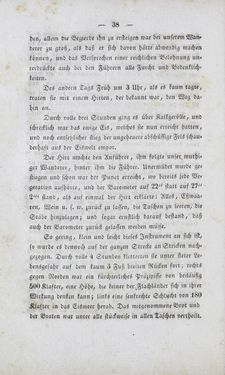 — 38 —
den, allein die Begierde ihn zu ersteigen war bei unserem Wan-
derer so groß, als daß ihn etwas hätte davon abwendig machen
können, und das Versprechen einer reichlichen Belohnung un-
terdrückte auch bei den Führern alle Furcht und Bedenklich-
keiten.
Des andern Tags Früh um 3 Uhr, als es kaum tagte,
traten sie mit einem Hirten, der bekannt war, den Weg da-
hin an.
Durch volle drei Stunden ging es über Kalkgerölle, und
nun kam das ewige Eis, welches sie nun erreicht hatten,
und noch einmal so hoch stieg der ungeheuer abschüssige Fels schau-
derhaft aus der Eiswelt empor.
Der Hirt machte den Anführer, ihm folgte unser muthi-
ger Wanderer, hinter ihm die Führer. Unermüdet wurde
gestiegen, und schon war der Punct erreicht, wo bereits jede Ve-
getation aufhörte, und der Barometer auf 22" statt auf 27"
2''' stand, als auf einmal ein starker Riß, Schma-
ren, Wein u. s. w. zurück zu lassen, die Taschen zu leeren, die
Stäbe hindangegeben, und sogar ernstlich darauf bestanden, daß
auch der Barometer zurück gelassen werden mußte.
So gering, klein und leicht dieses Instrument an sich ist,
so wurde es doch auf der ganzen Strecke an Stricken nachge-
zogen. Durch volle 4 Stunden kletterten sie unter steter
Lebensgefahr auf dem kaum 3 Fuß breiten Rücken fort; rechts
war ein fürchterliches Präzipisse von beiläufig
500 Klafter, eine Höhe, die keiner der Flachländer sich in ihrer
Wirkung denken kann; links eine senkrechte Schlucht von 180
Klafter in das Eismeer herab. Das mitgenommene Brot und
der Braten war unter alle stückweise in allen Taschen vertheilt.